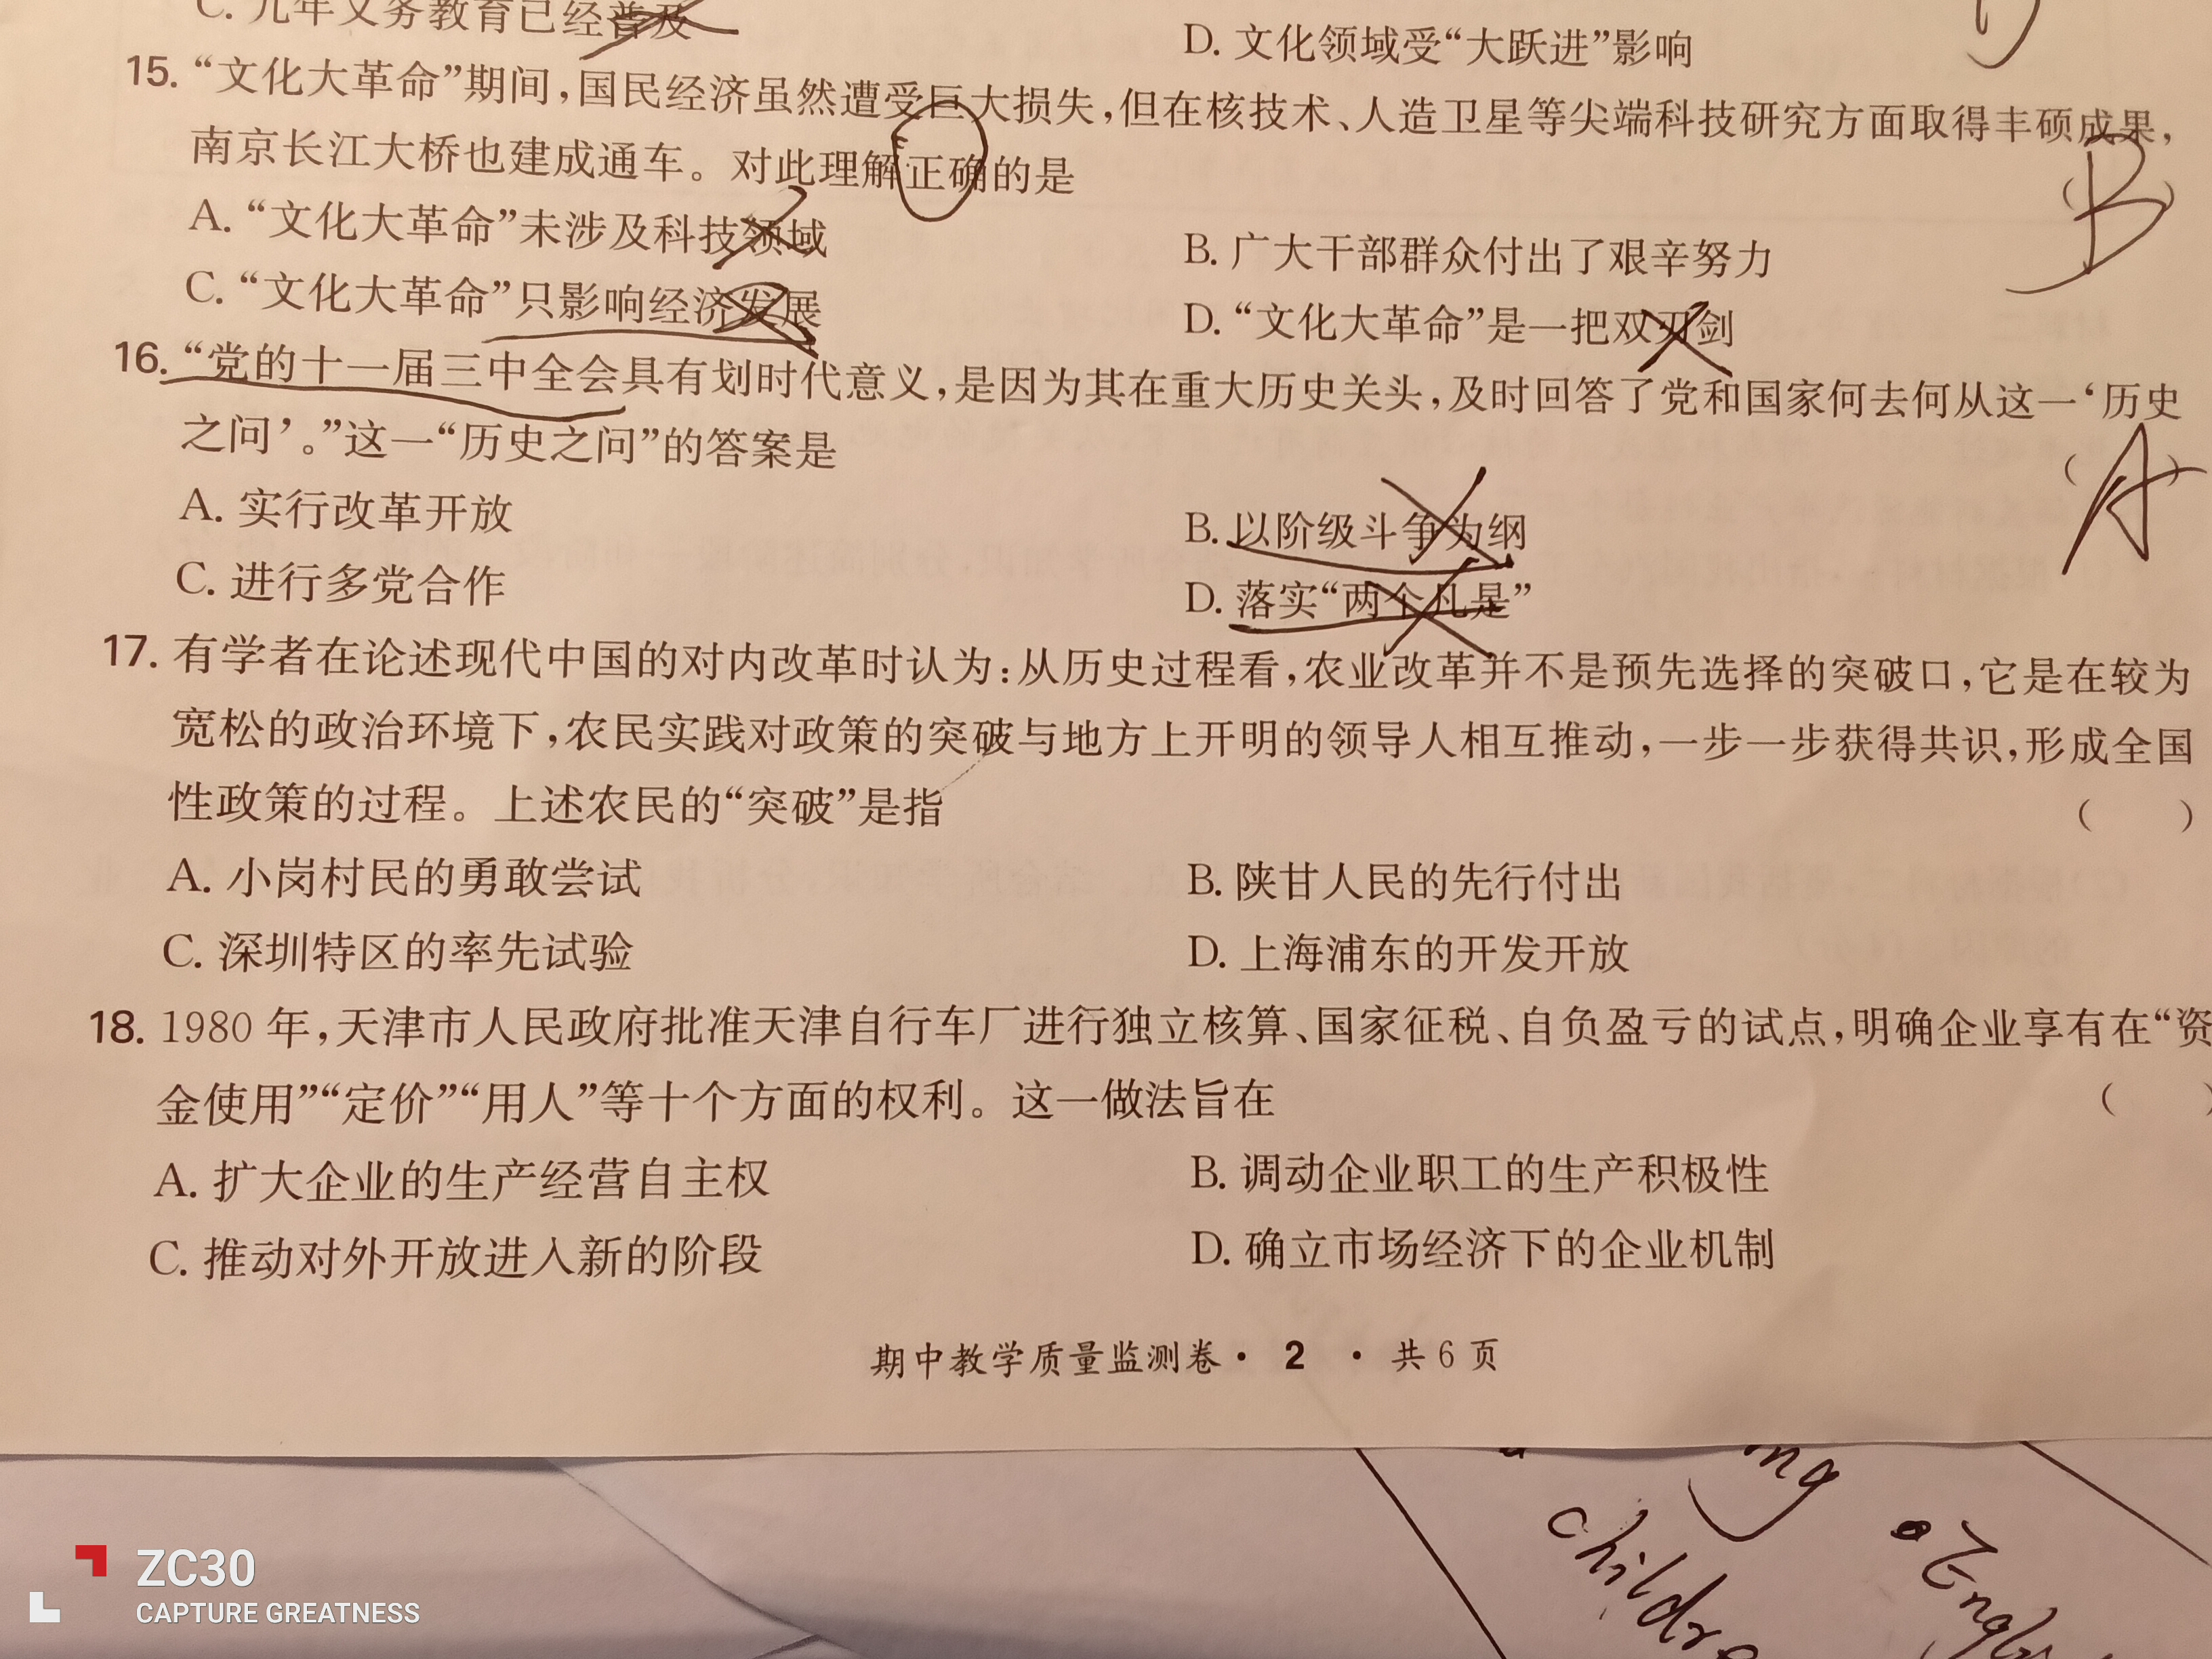 C. 九年义务教育已经普及
D. 文化领域受“大跃进”影响
15. “文化大革命”期间，国民经济虽然遭受巨大损失，但在核技术、人造卫星等尖端科技研究方面取得丰硕成果，
南京长江大桥也建成通车。对此理解正确的是
( B )
A. “文化大革命”未涉及科技领域
B. 广大干部群众付出了艰辛努力
C. “文化大革命”只影响经济发展
D. “文化大革命”是一把双刃剑
16. “党的十一届三中全会具有划时代意义，是因为其在重大历史关头，及时回答了党和国家何去何从这一‘历史
之问’。”这一“历史之问”的答案是
( A )
A. 实行改革开放
B. 以阶级斗争为纲
C. 进行多党合作
D. 落实“两个凡是”
17. 有学者在论述现代中国的对内改革时认为：从历史过程看，农业改革并不是预先选择的突破口，它是在较为
宽松的政治环境下，农民实践对政策的突破与地方上开明的领导人相互推动，一步一步获得共识，形成全国
性政策的过程。上述农民的“突破”是指
( )
A. 小岗村民的勇敢尝试
B. 陕甘人民的先行付出
C. 深圳特区的率先试验
D. 上海浦东的开发开放
18. 1980 年，天津市人民政府批准天津自行车厂进行独立核算、国家征税、自负盈亏的试点，明确企业享有在“资
金使用”“定价”“用人”等十个方面的权利。这一做法旨在
( )
A. 扩大企业的生产经营自主权
B. 调动企业职工的生产积极性
C. 推动对外开放进入新的阶段
D. 确立市场经济下的企业机制
期中教学质量监测卷· 2 · 共 6 页
ZC30
CAPTURE GREATNESS